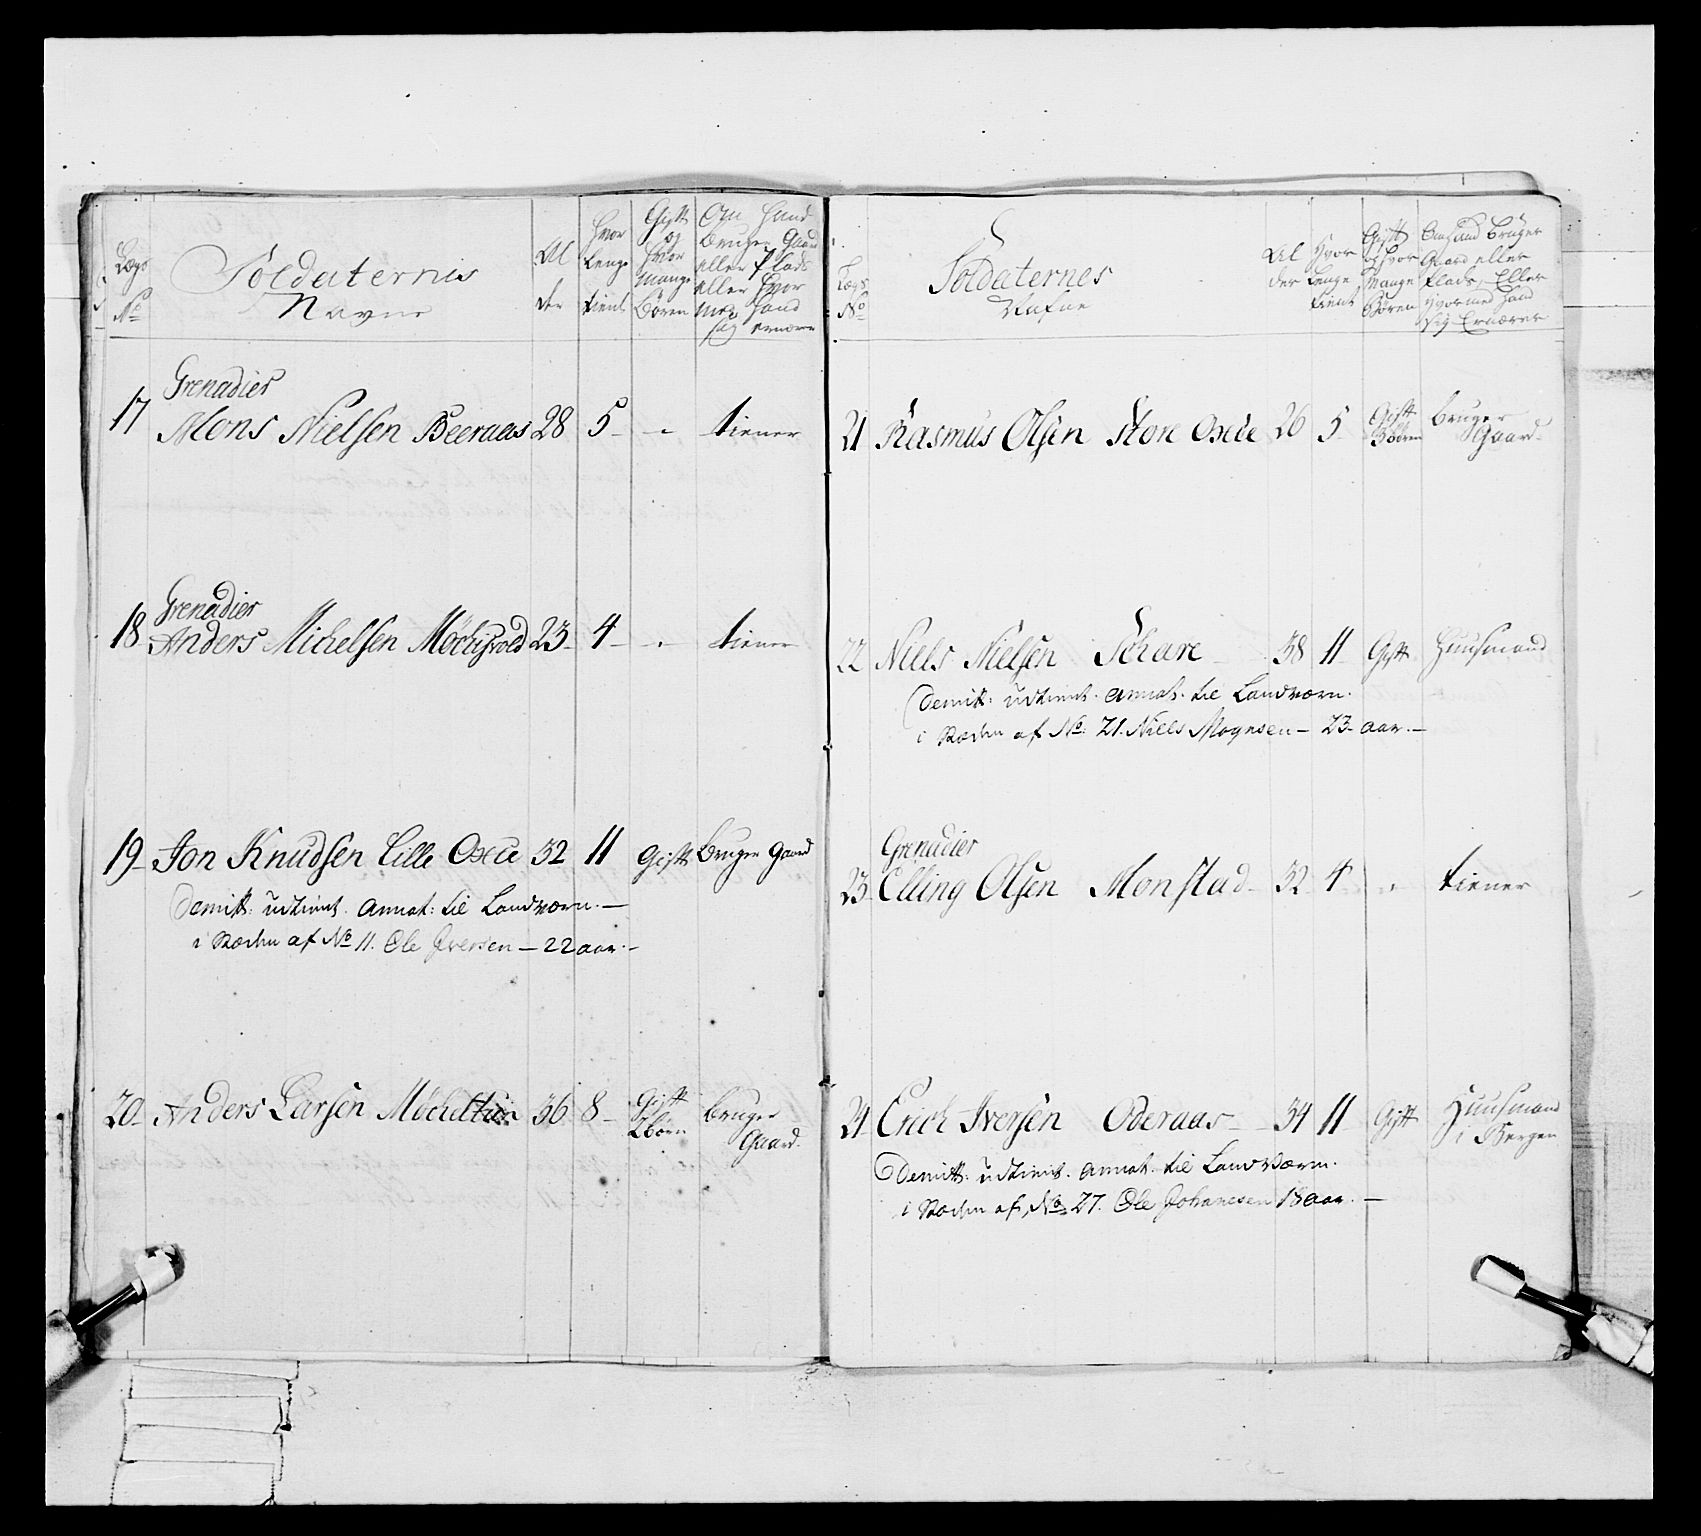 Lægs
No
Soldaternis
Navne
Al
der
Hvor
Lenge
tient
Gift
og
Hvor
mange
Børen
Om Hand
Bruger Gaard
eller Plads
eller Hvor
med Hand
sig ernærer
17 Grenadier
Mons Nielsen Beeraas 28 5 - - tiener
18 Grenadier
Anders Michelsen 23 4 - - tiener
19 Jon Knudsen Lille Oxee 32 11 Gift Bruger Gaard
Demitt: udtient. Annot: til Landværn. —
i Stæden af No 11. Ole Iversen — 22 aar. -
20 Anders Larsen 36 8 - Gift
2 børn
bruger
Gaard.
Lægs
No
Soldaternes
Nafne
Al
der
Hvor
Lenge
tient
Gift
og Hvor
Mange
Børen
Om Hand Bruger
Gaard eller
Plads, Eller
Hvormed Hand
sig Ernærer
21 Rasmus Olsen Store Oxe 26 5 Gift
3 Børen
bruger
Gaard.
22 Niels Nielsen Schare - 38 11 Gift Huusmand
Demitt: udtient. Annot. til Landværn.
i Stæden af No: 21. Niels Mognsen — 23 aar. —
23 Grenadier
Elling Olsen Monstad 32 4 - tiener
24 Erich Iversen Oderaas - 34 11 Gift Huusmand
i Bergen
Demitt. udtient. Annot. til Landværn.
i Stæden af No 27. Ole Johannesen 18 aar. —